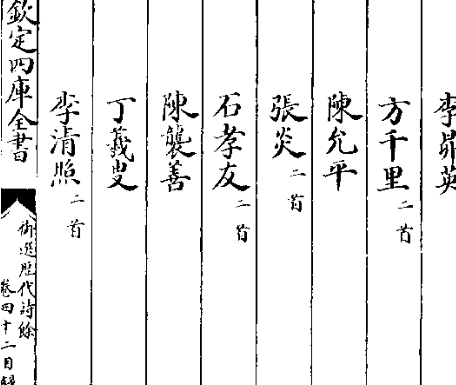 李昴英
方千里二首
陳允平
張炎二首
石孝友二首
陳襲善
丁羲叟
李清照二首
欽定四庫全書
御選歷代詩餘
卷四十二目錄